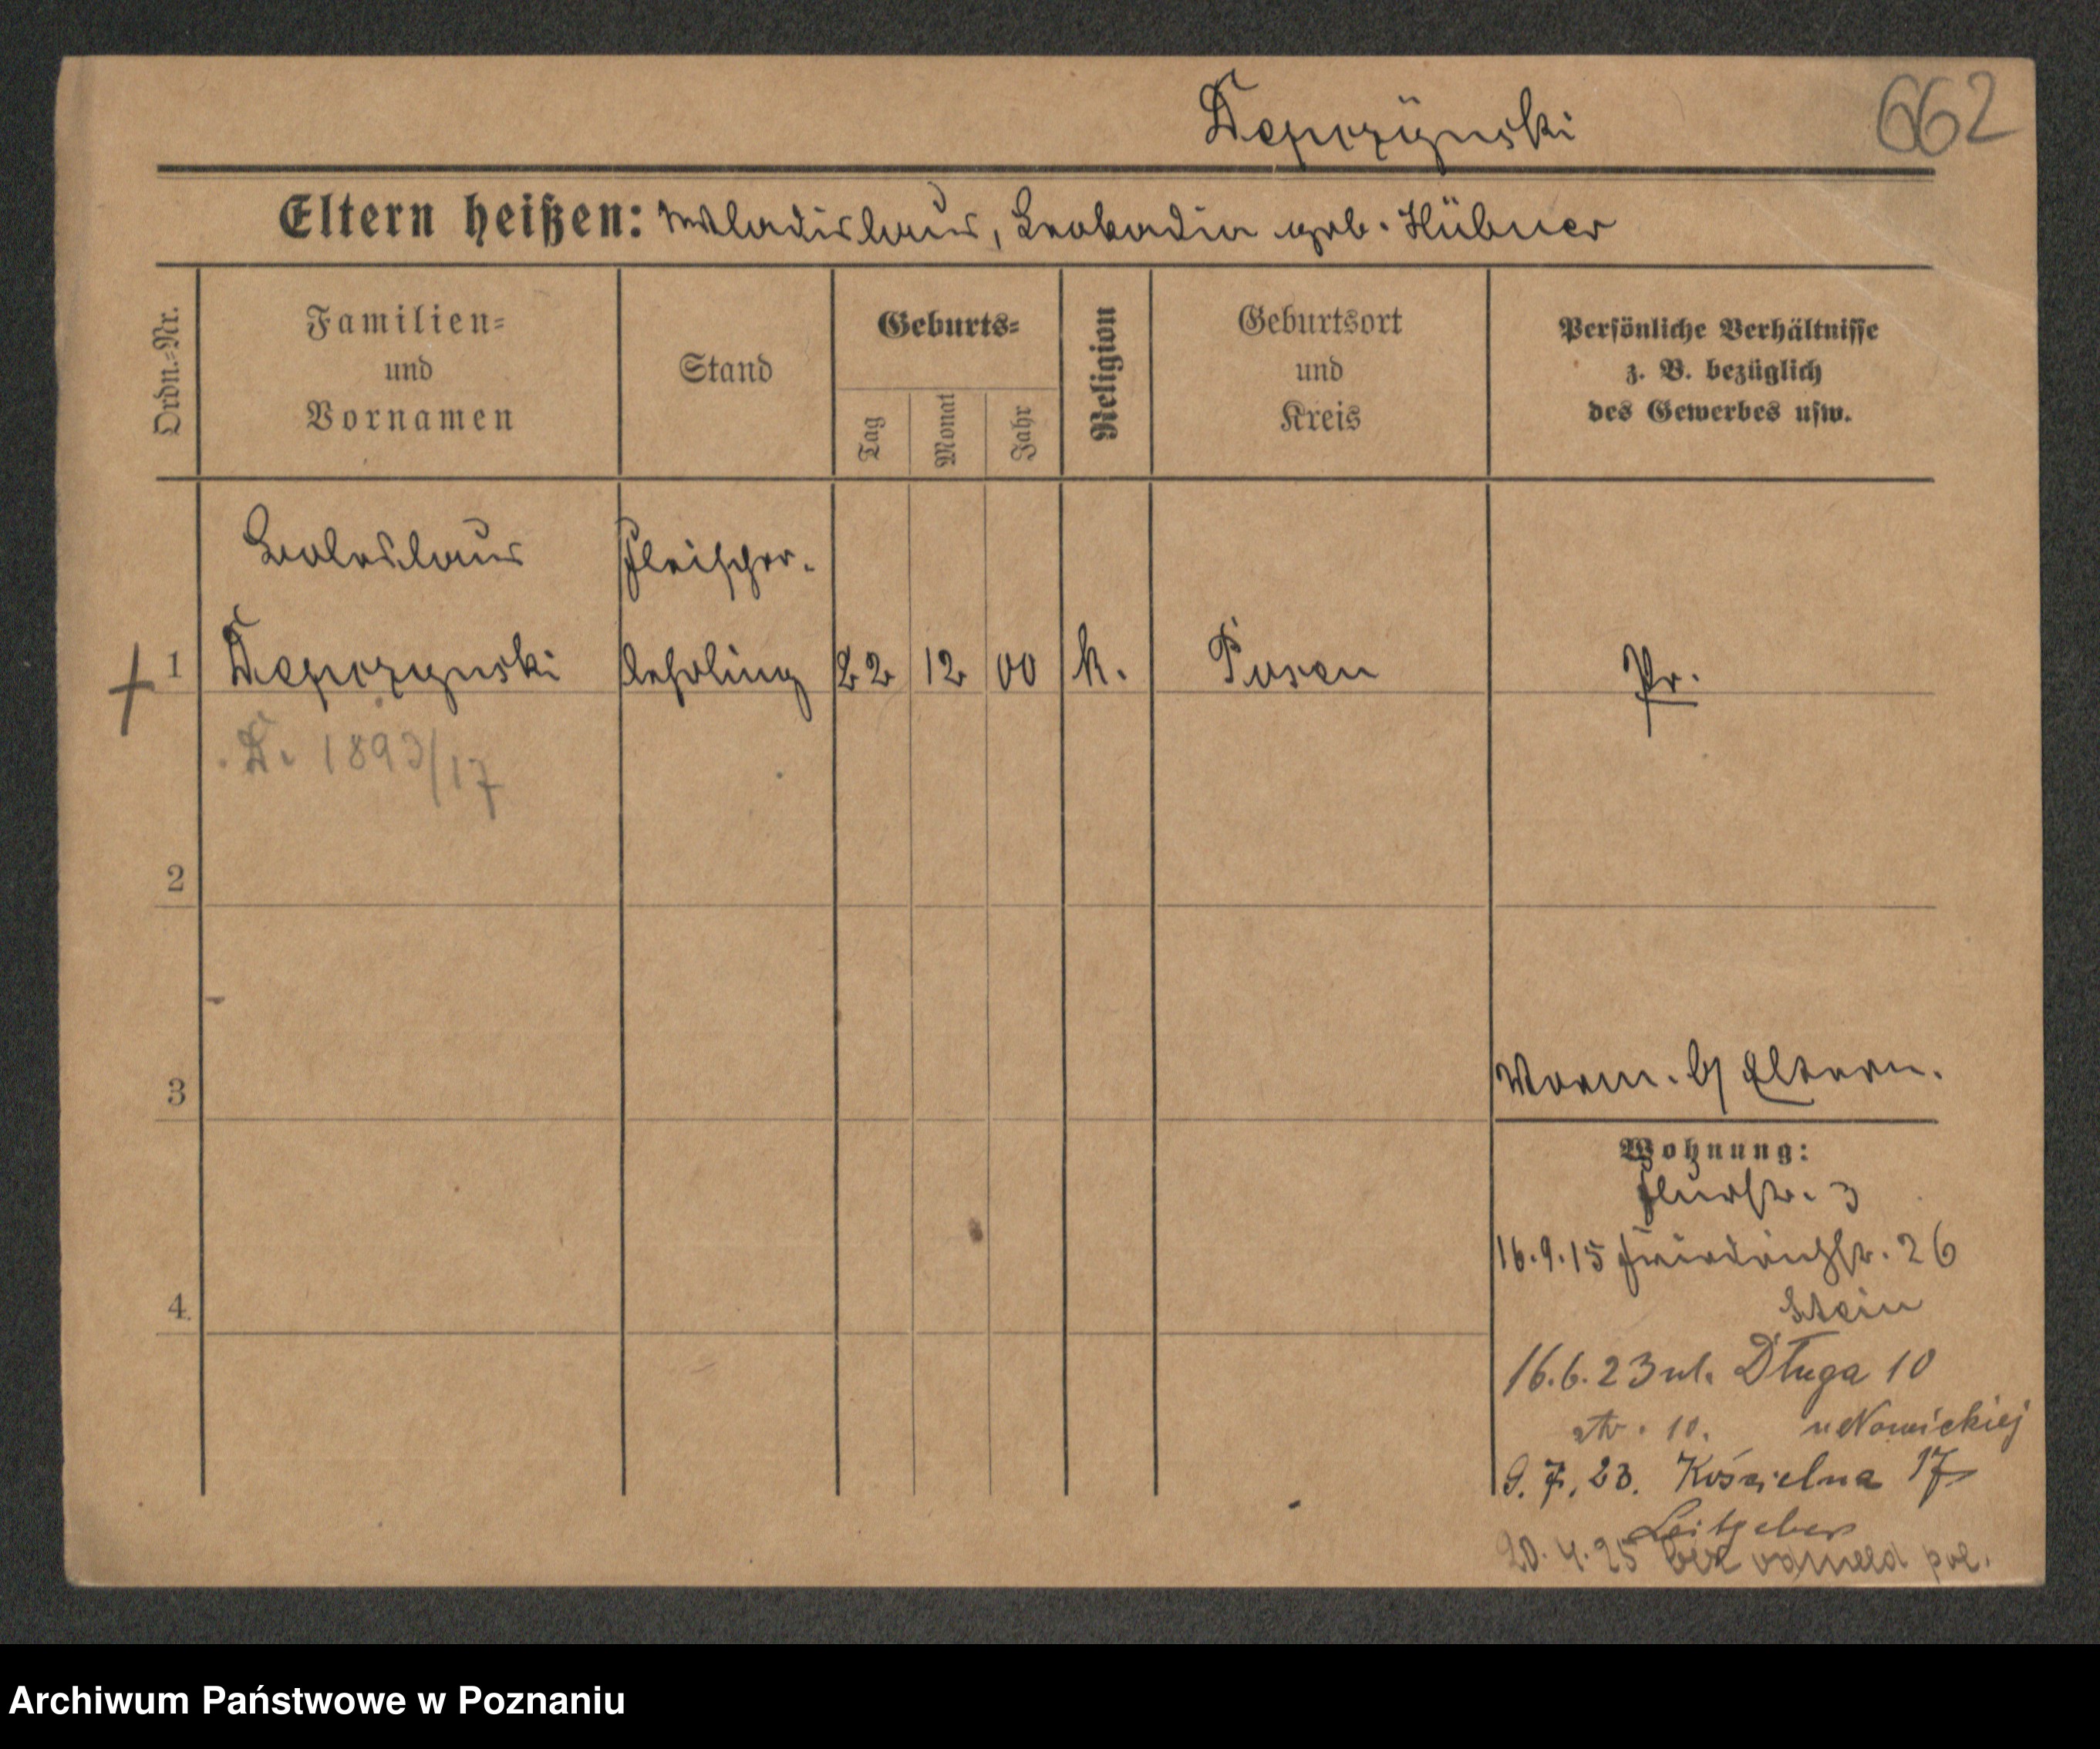 662
Depczÿnski
Eltern heißen: Wladislaus, Leokadia geb. Hübner
Ordn.=Nr.
Familien=
und
Vornamen
Stand
Geburts=
Tag
Monat
Jahr
Religion
Geburtsort
und
Kreis
Persönliche Verhältnisse
z. B. bezüglich
des Gewerbes usw.
Boleslaus Fleischer-
1 Depczynski lehrling 22 12 00 k. Posen Pr.
D. 1893/17
2
3
Eltern.
Wohnung:
Flurstr. 3
4
16.9.15 Friedrichstr. 26
Stein
16.6.23 ul. Długa 10
10. u Nowickiej
9.7.23. Kościelna 17
Leitgeber
20.4.25 bez odmeld pol.
Archiwum Państwowe w Poznaniu